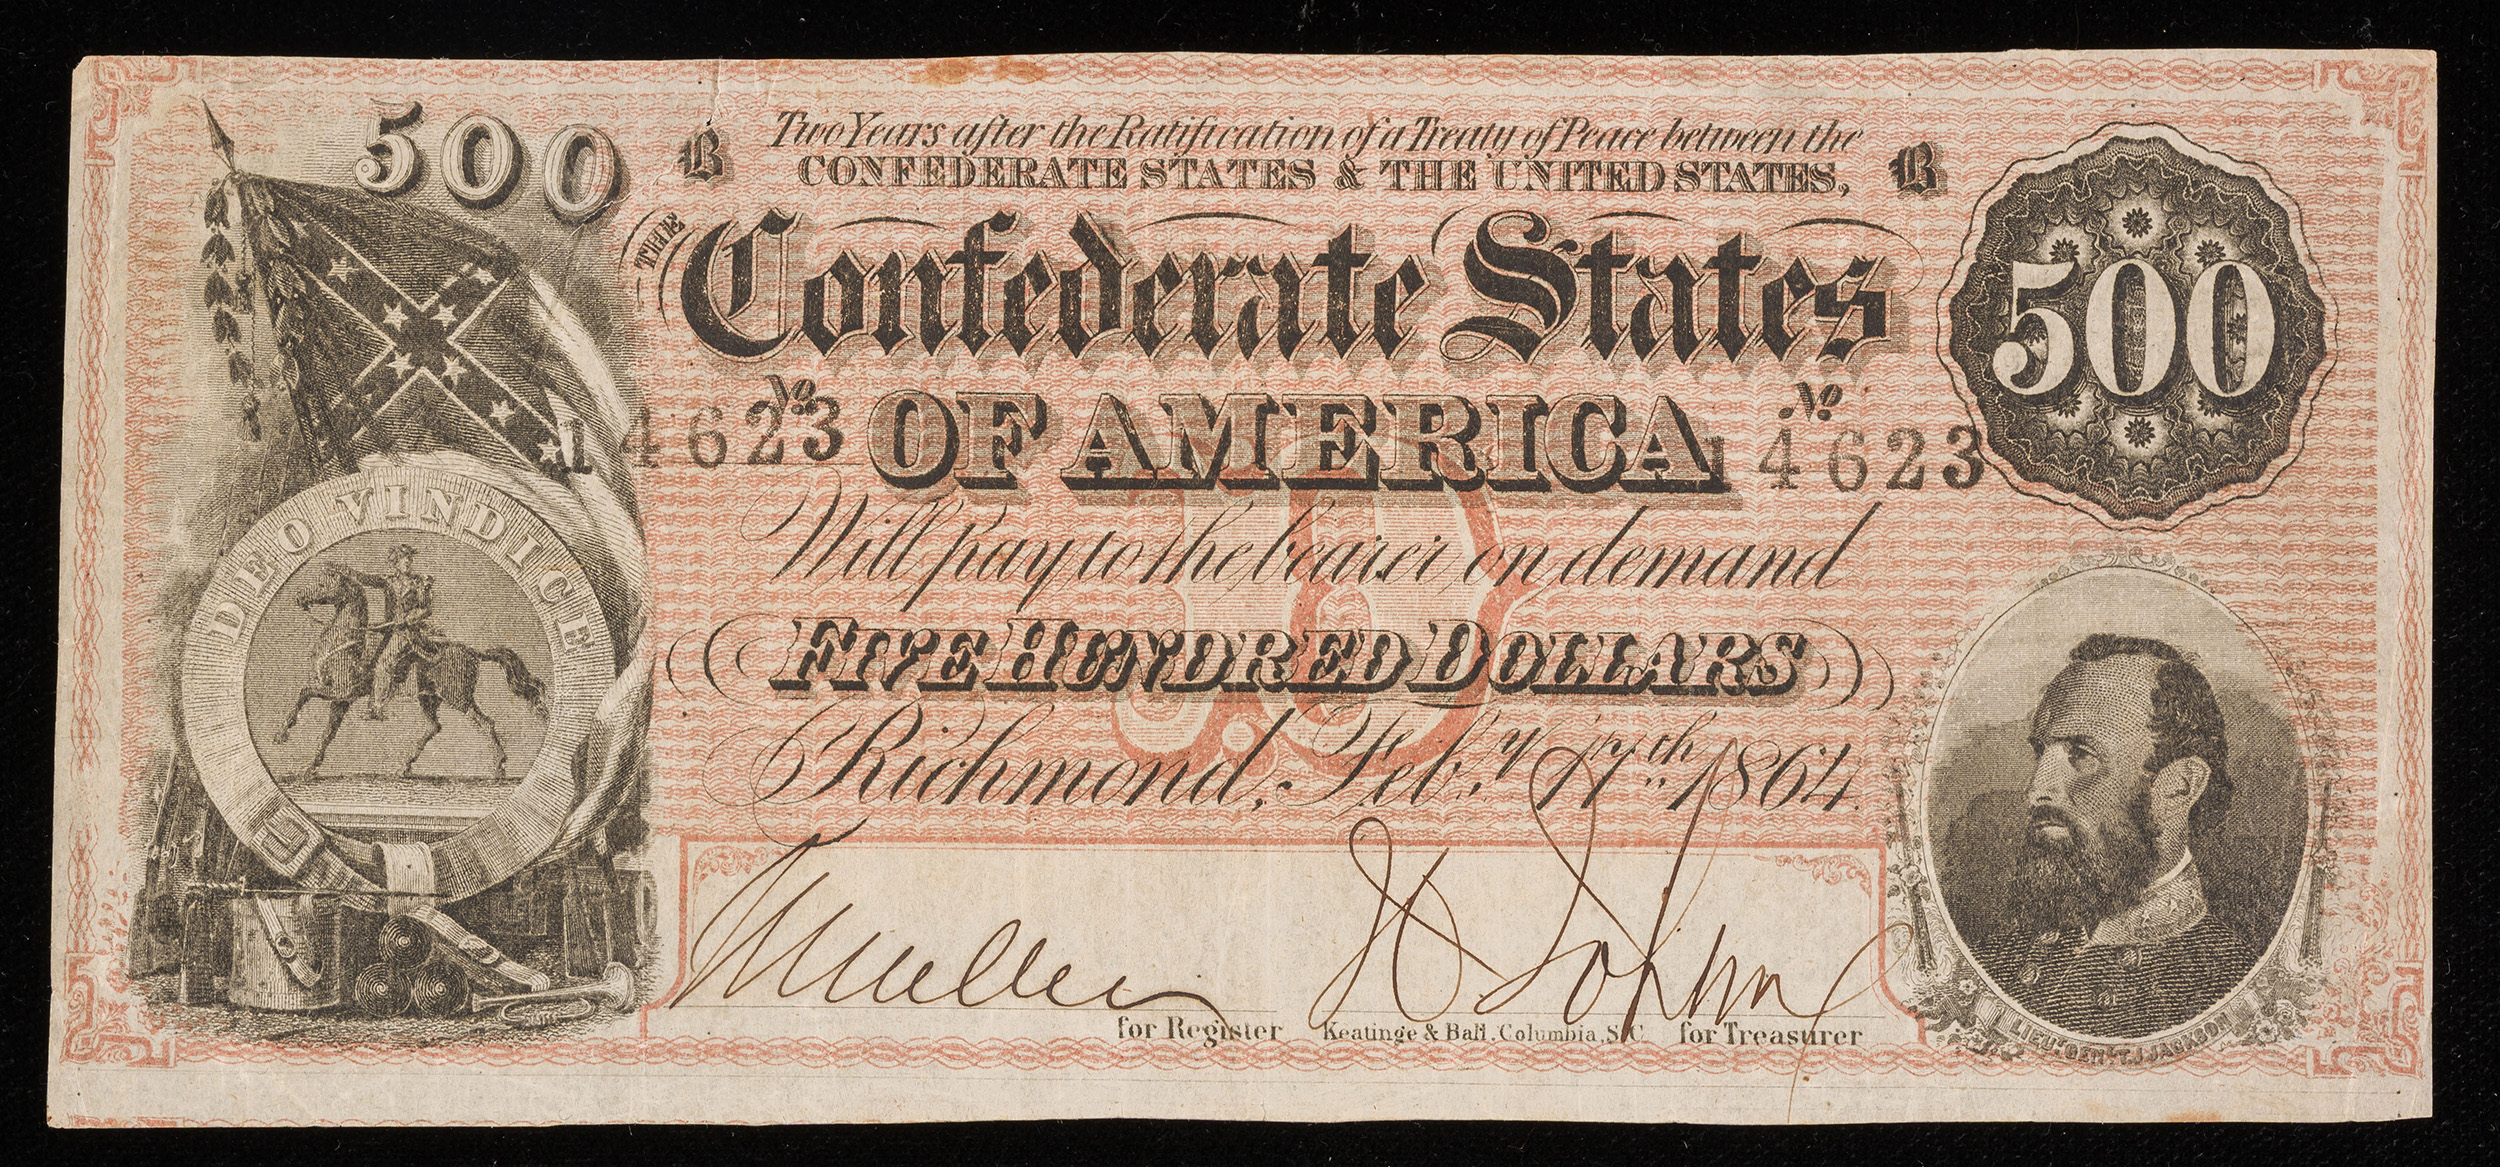 500
B Two Years after the Ratification of a Treaty of Peace between the B
CONFEDERATE STATES & THE UNITED STATES,
THE Confederate States
500
No No
14623 OF AMERICA 14623
DEO VINDICE
Will pay to the bearer on demand
FIVE HUNDRED DOLLARS
D
Richmond, Feb.y 17th 1864.
for Register Keatinge & Ball, Columbia, S.C. for Treasurer
LIEUT. GENL. T.J. JACKSON